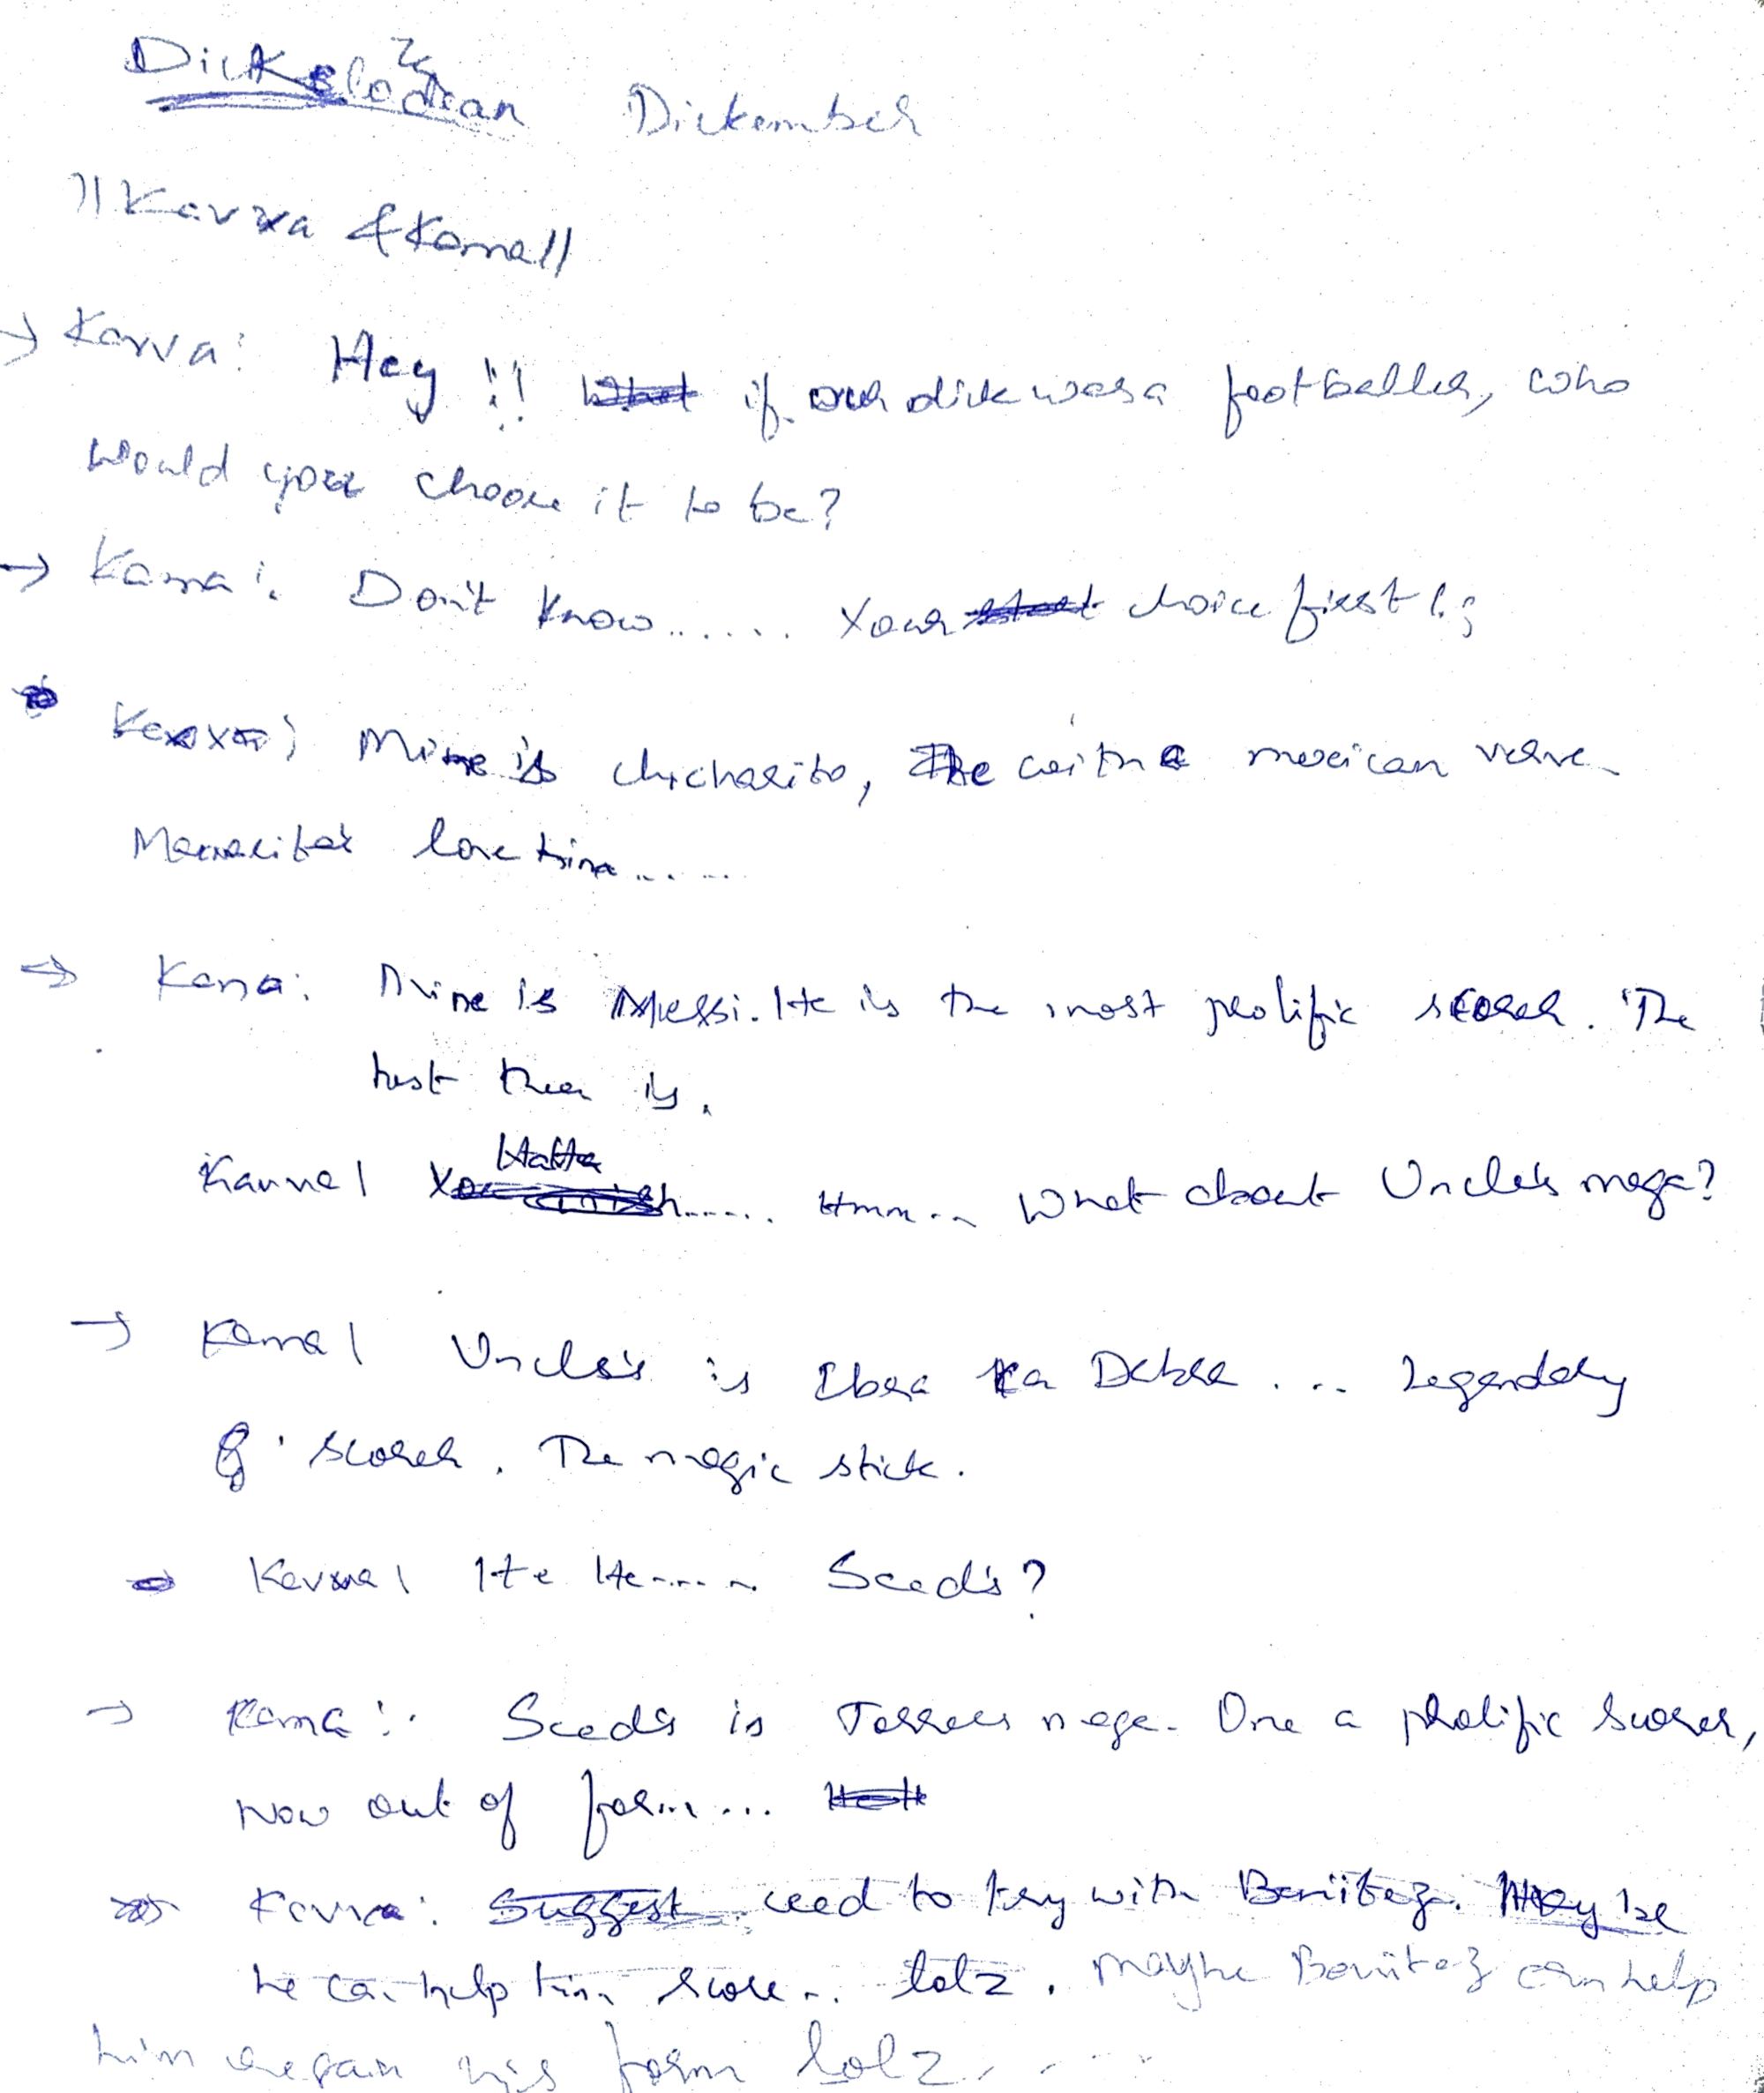 Dickelodean Dickember
|| Kavva & Kama ||
→ Kavva: Hey!! if our dick was a footballer, who
would you choose it to be?
→ Kama: Don't know...... Your choice first!;
Kavva: Mine is chicharito, The with a mexican verve.
Mamacitas love him.....
⇒ Kama: Mine is Messi. He is the most prolific scorer. The
best there is.
Kavva: Hatta ..... Hmm... What about Uncle's maga?
→ Kama: Uncle's is Ibra Ka Dabra ... Legendary
scorer. The magic stick.
Kavva: He He..... Seed's?
→ Kama: Seed's is Torres maga. One a prolific scorer,
now out of form...
Kavva: need to try with Beniitez. May be
he can help him score... lolz. maybe Beniitez can help
him regain his form lolz.....